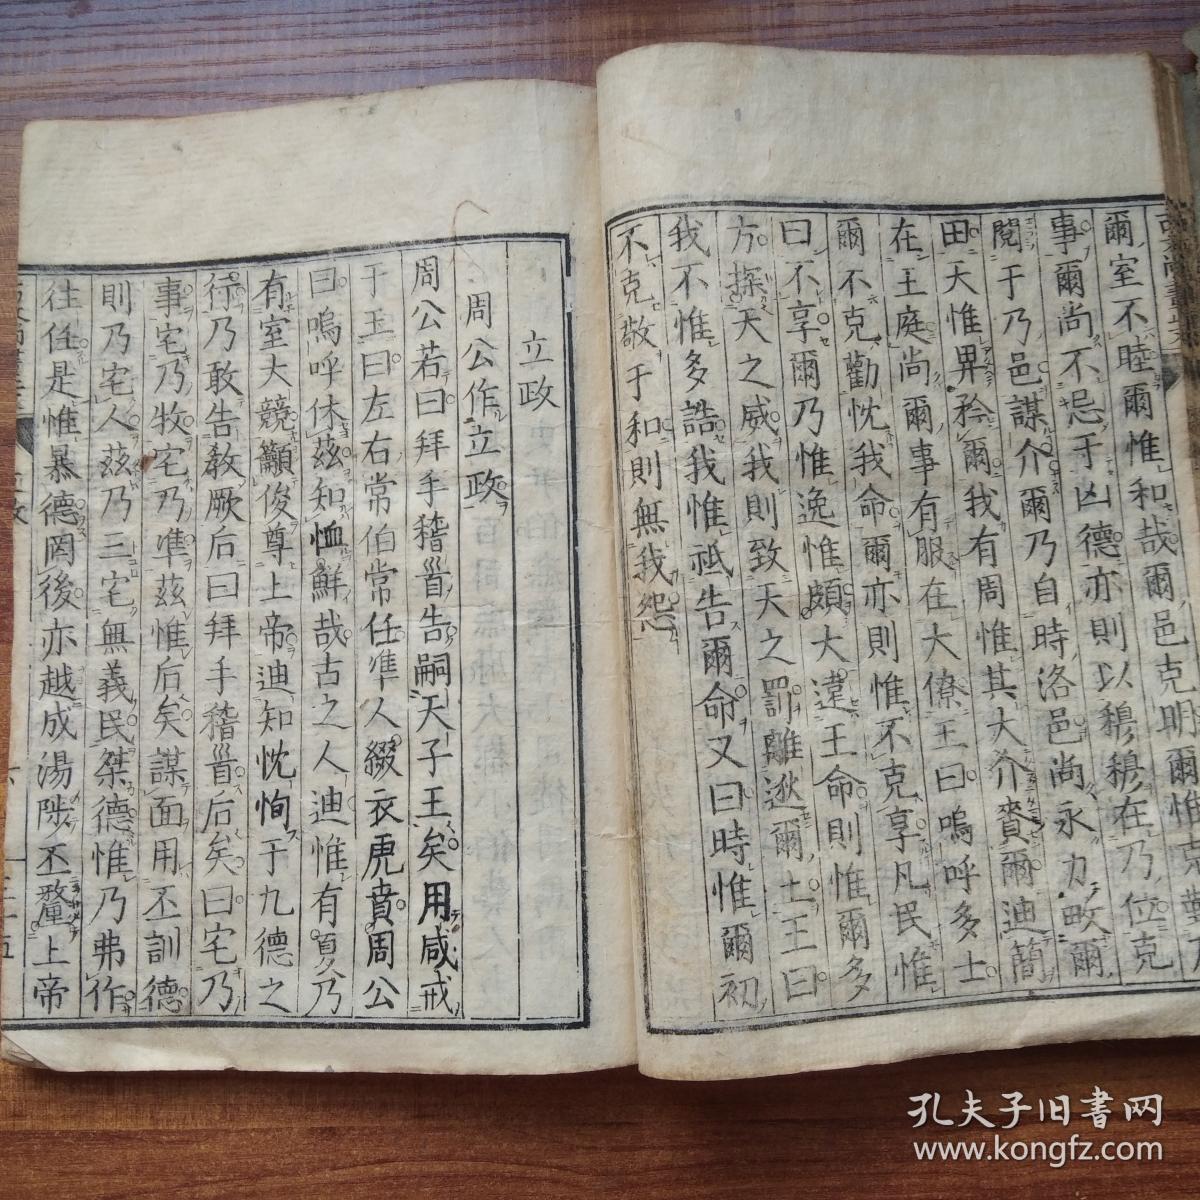 爾室不睦爾惟和哉爾邑克明爾惟克勤乃
事爾尚不忌于凶德亦則以穆穆在乃位克
閱于乃邑謀介爾乃自時洛邑尚永力畋爾
田天惟畀矜爾我有周惟其大介賚爾迪簡
在王庭尚爾事有服在大僚王曰嗚呼多士
爾不克勸忱我命爾亦則惟不克享凡民惟
曰不享爾乃惟逸惟頗大遠王命則惟爾多
方探天之威我則致天之罰離逖爾土王曰
我不惟多誥我惟祗告爾命又曰時惟爾初
不克敬于和則無我怨
立政
周公作立政
周公若曰拜手稽首告嗣天子王矣用咸戒
于王曰左右常伯常任準人綴衣虎賁周公
曰嗚呼休茲知恤鮮哉古之人迪惟有夏乃
有室大競籲俊尊上帝迪知忱恂于九德之
行乃敢告教厥后曰拜手稽首后矣曰宅乃
事宅乃牧宅乃準茲惟后矣謀面用丕訓德
則乃宅人茲乃三宅無義民桀德惟乃弗作
往任是惟暴德罔後亦越成湯陟丕釐上帝
孔夫子旧书网
www.kongfz.com